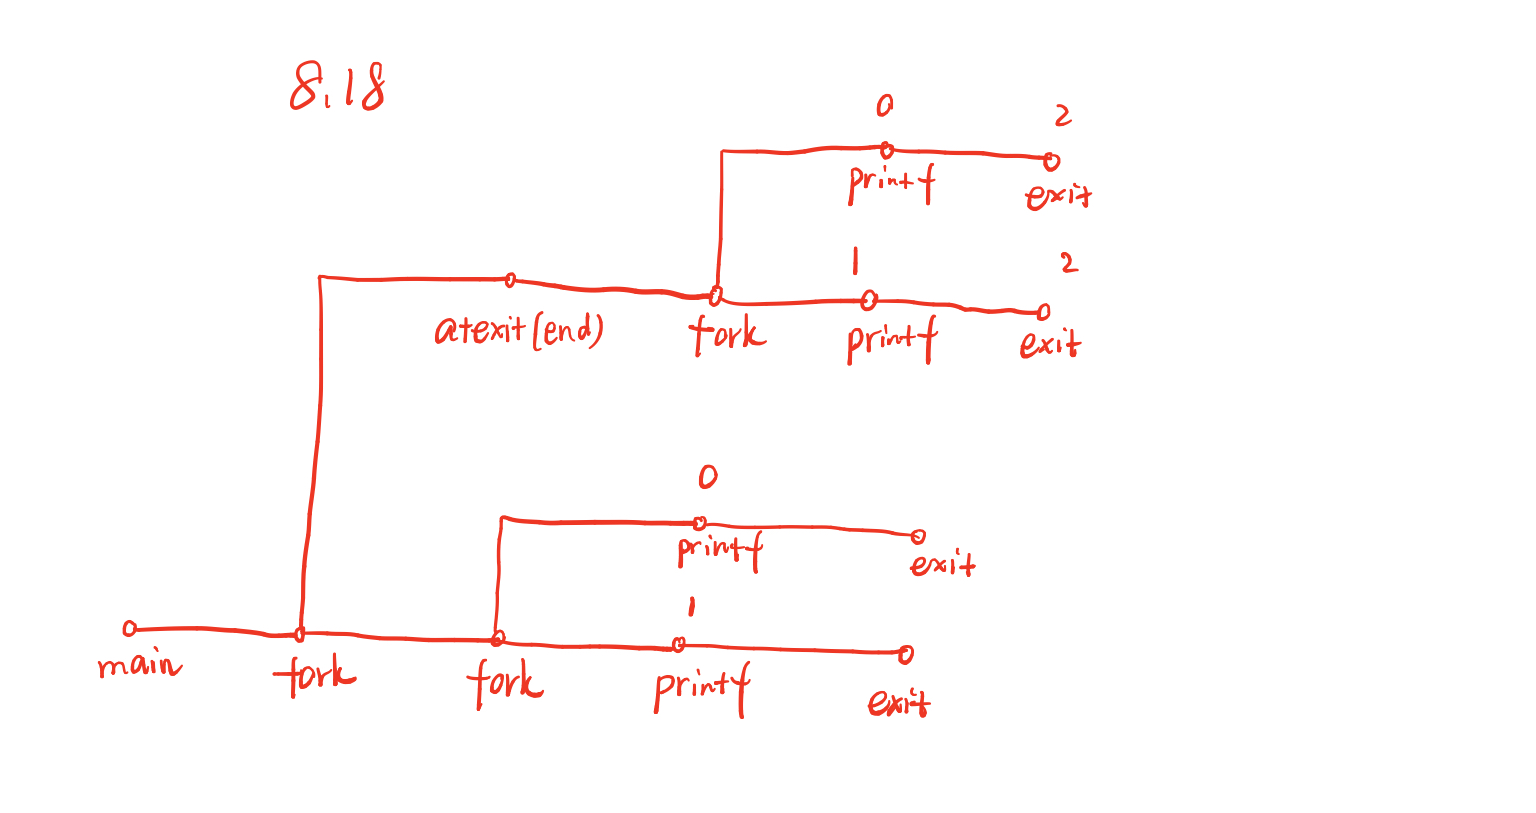 8.18
0 2
printf exit
1 2
atexit(end) fork printf exit
0
printf exit
1
main fork fork printf exit